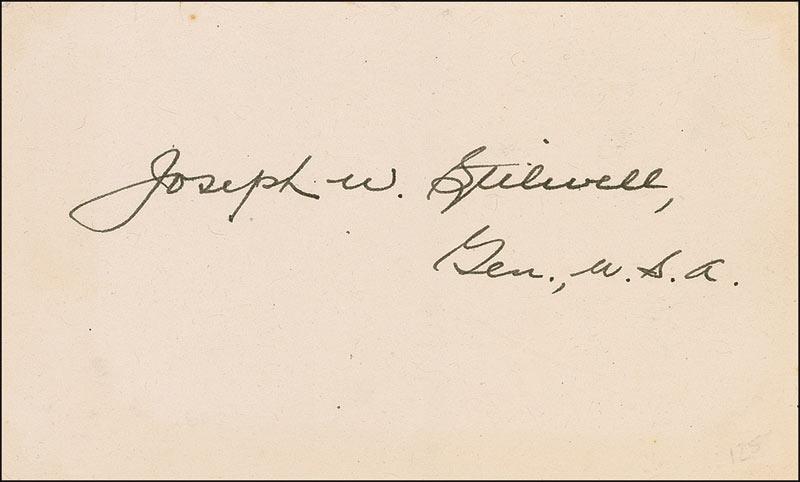 Joseph W. Stilwell,
Gen., U.S.A.
125